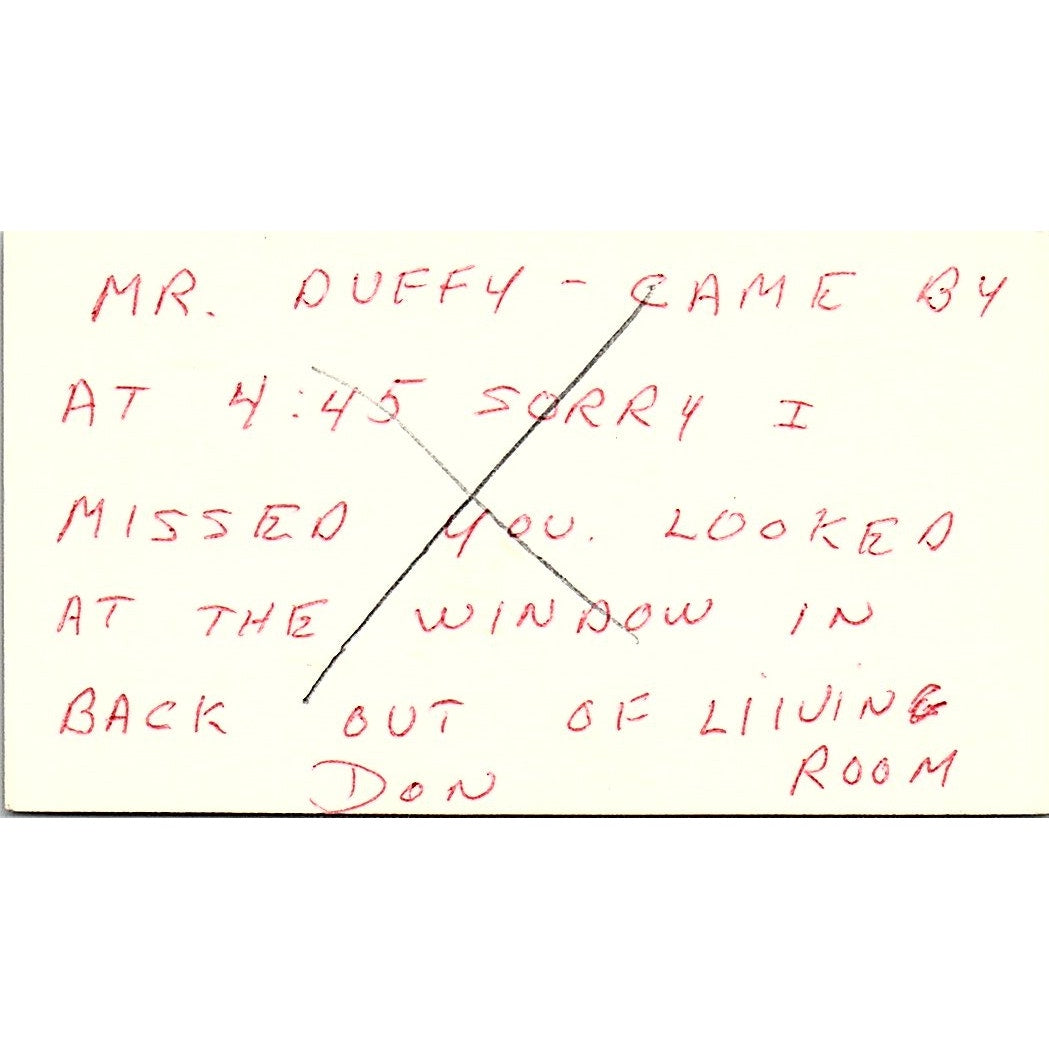 MR. DUFFY - CAME BY
AT 4:45 SORRY I
MISSED YOU. LOOKED
AT THE WINDOW IN
BACK OUT OF LIIVING
ROOM
DON